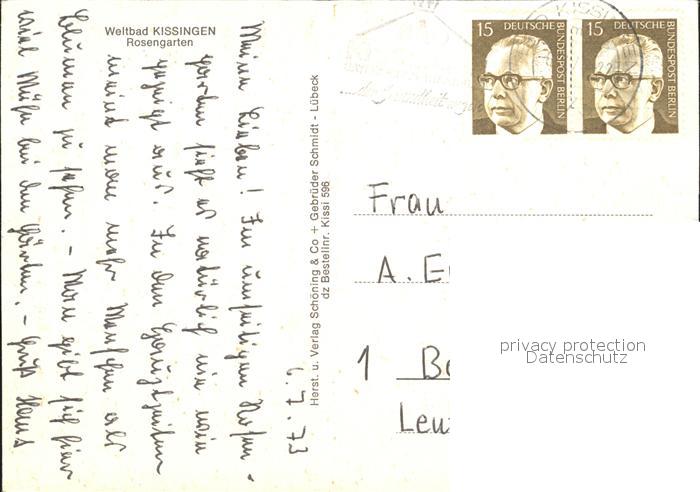 Weltbad KISSINGEN
Rosengarten
Meine Lieben! Im umseitigen Rosen-
garten sieht es natürlich nie
gezeigt aus. In den
meint man mehr Menschen als
Blumen zu sehen. - Man gibt sich hier
viel Mühe bei den Gärten. - Gruß Hans
6.7.73
Herst. u. Verlag Schöning & Co + Gebrüder Schmidt - Lübeck
dz Bestellnr. Kissi 596
15 DEUTSCHE BUNDESPOST BERLIN
15 DEUTSCHE BUNDESPOST BERLIN
KISSI
Frau
A. E
1 Be
Leu
privacy protection
Datenschutz